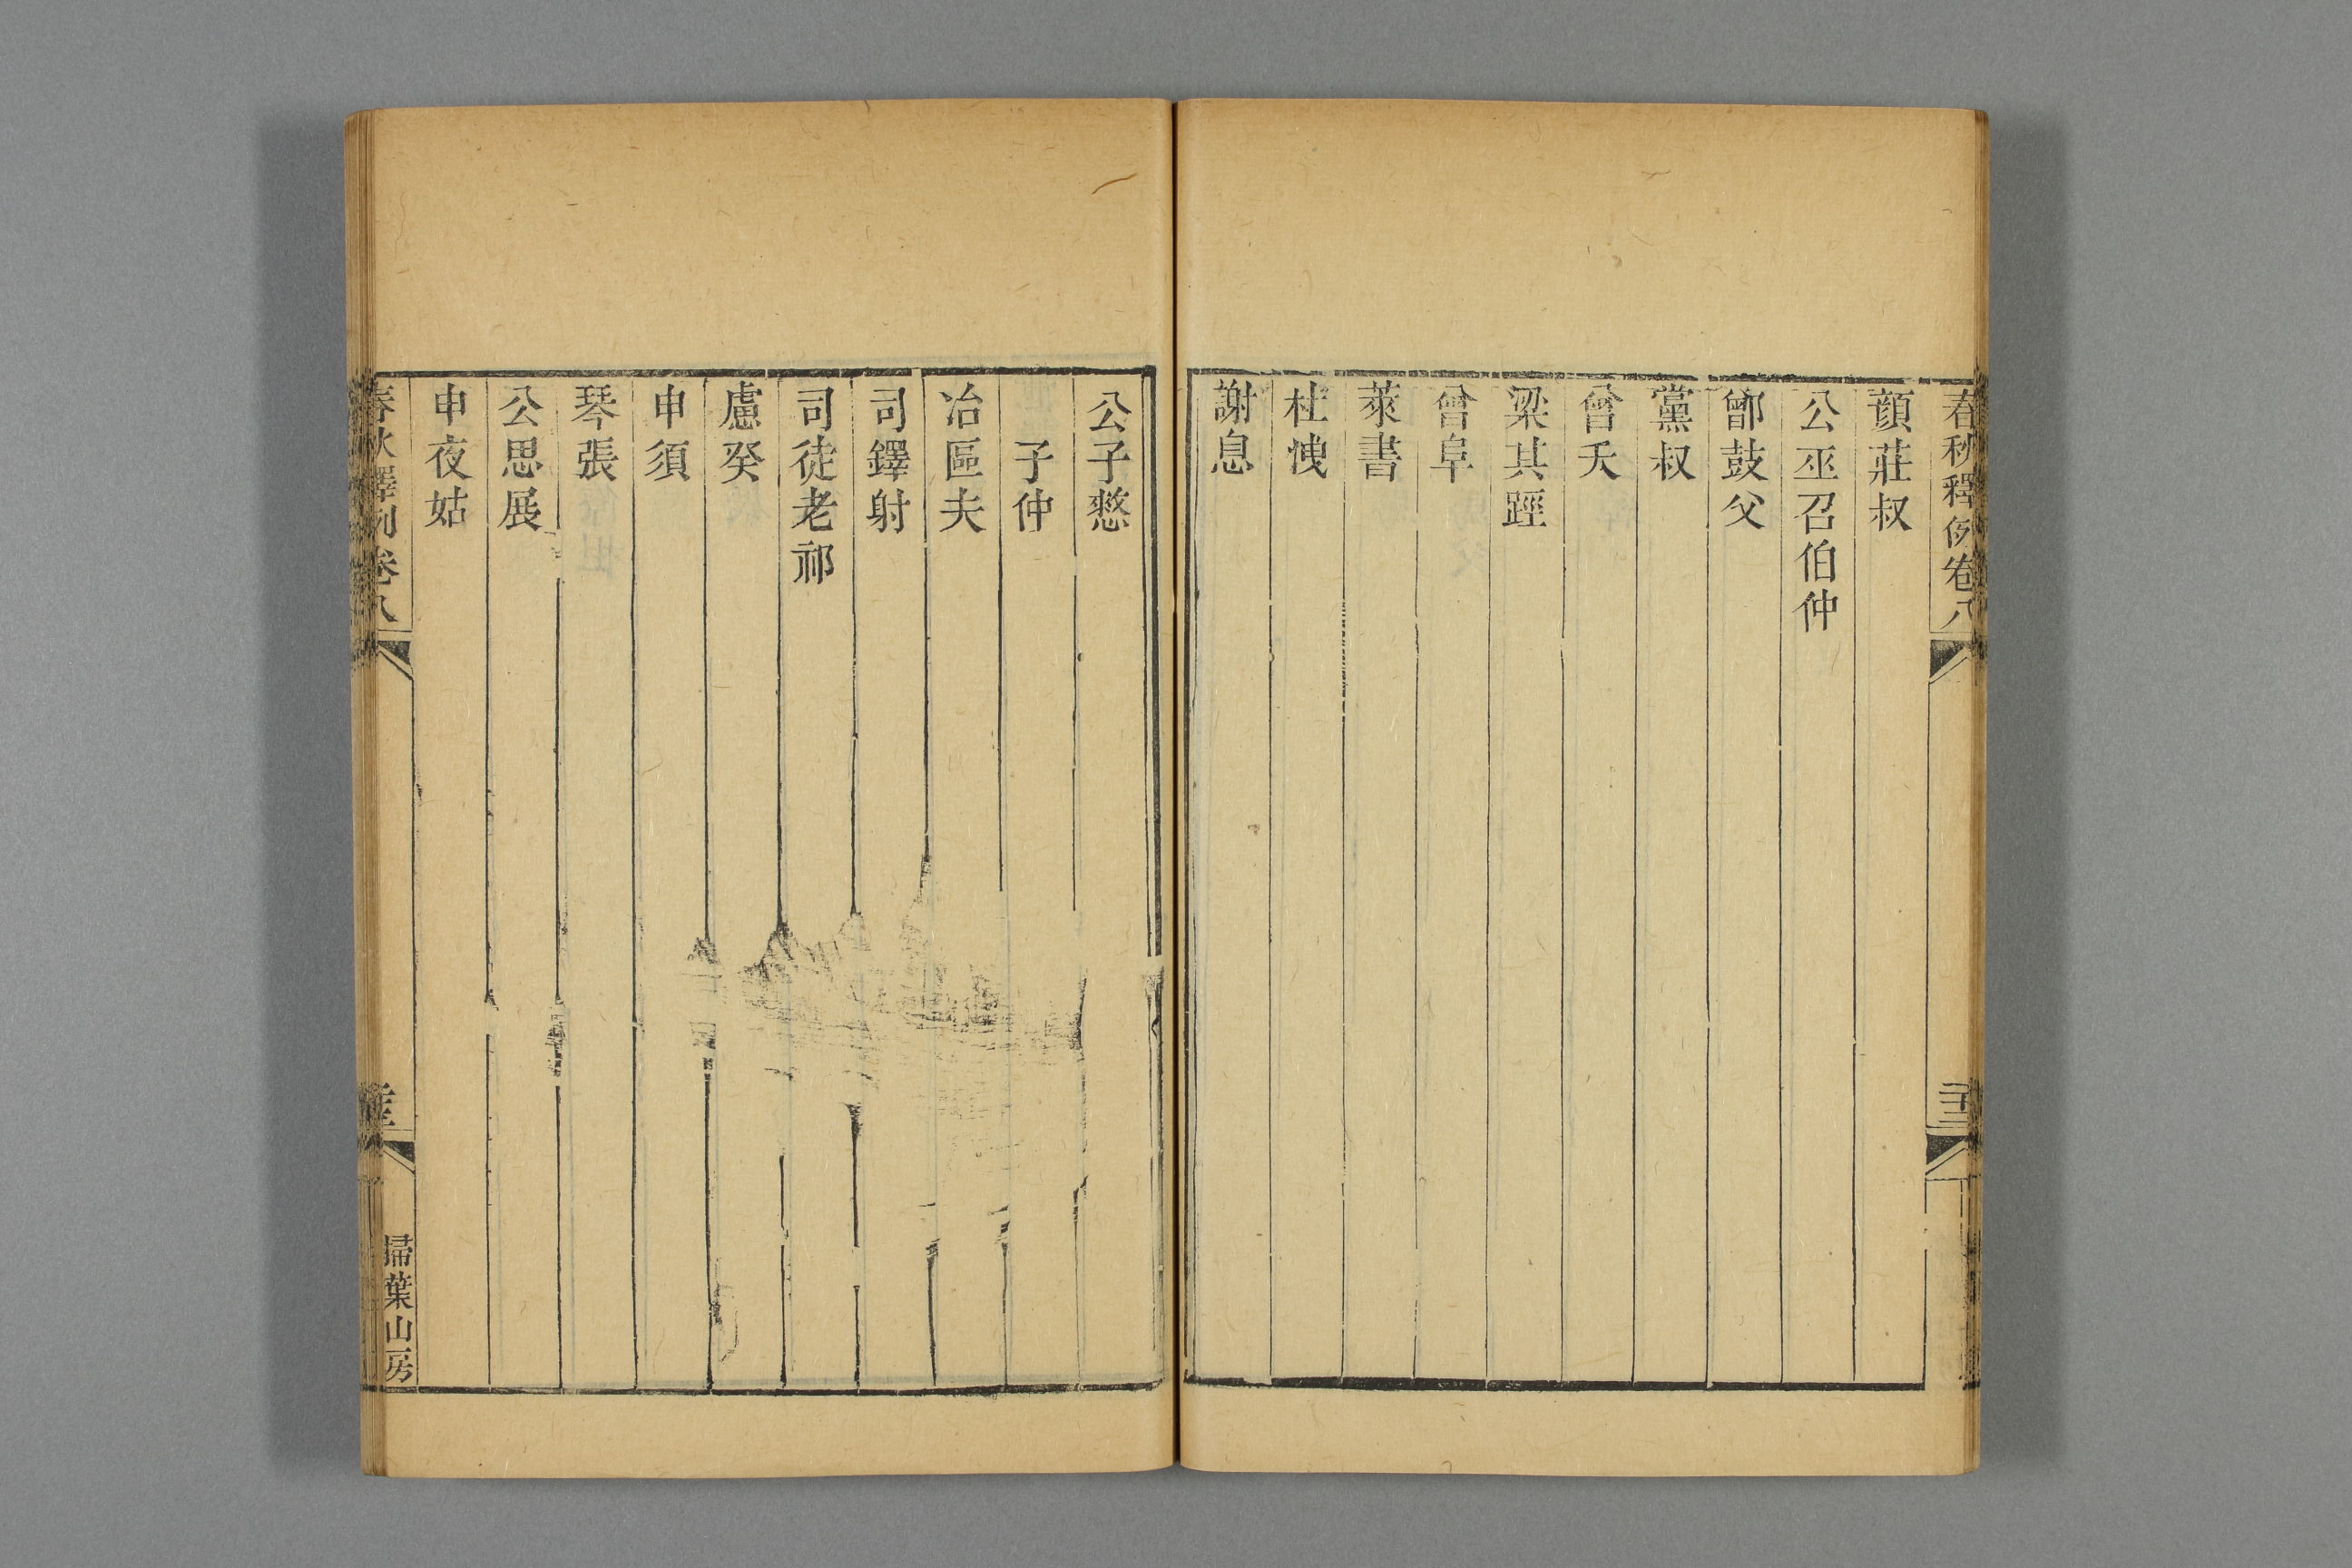 春秋釋例卷八
顏莊叔
公巫召伯仲
鄫鼓父
黨叔
曾夭
梁其踁
曾阜
萊書
杜洩
謝息
公子憖
子仲
冶區夫
司鐸射
司徒老祁
慮癸
申須
琴張
公思展
申夜姑
春秋釋例卷八
掃葉山房